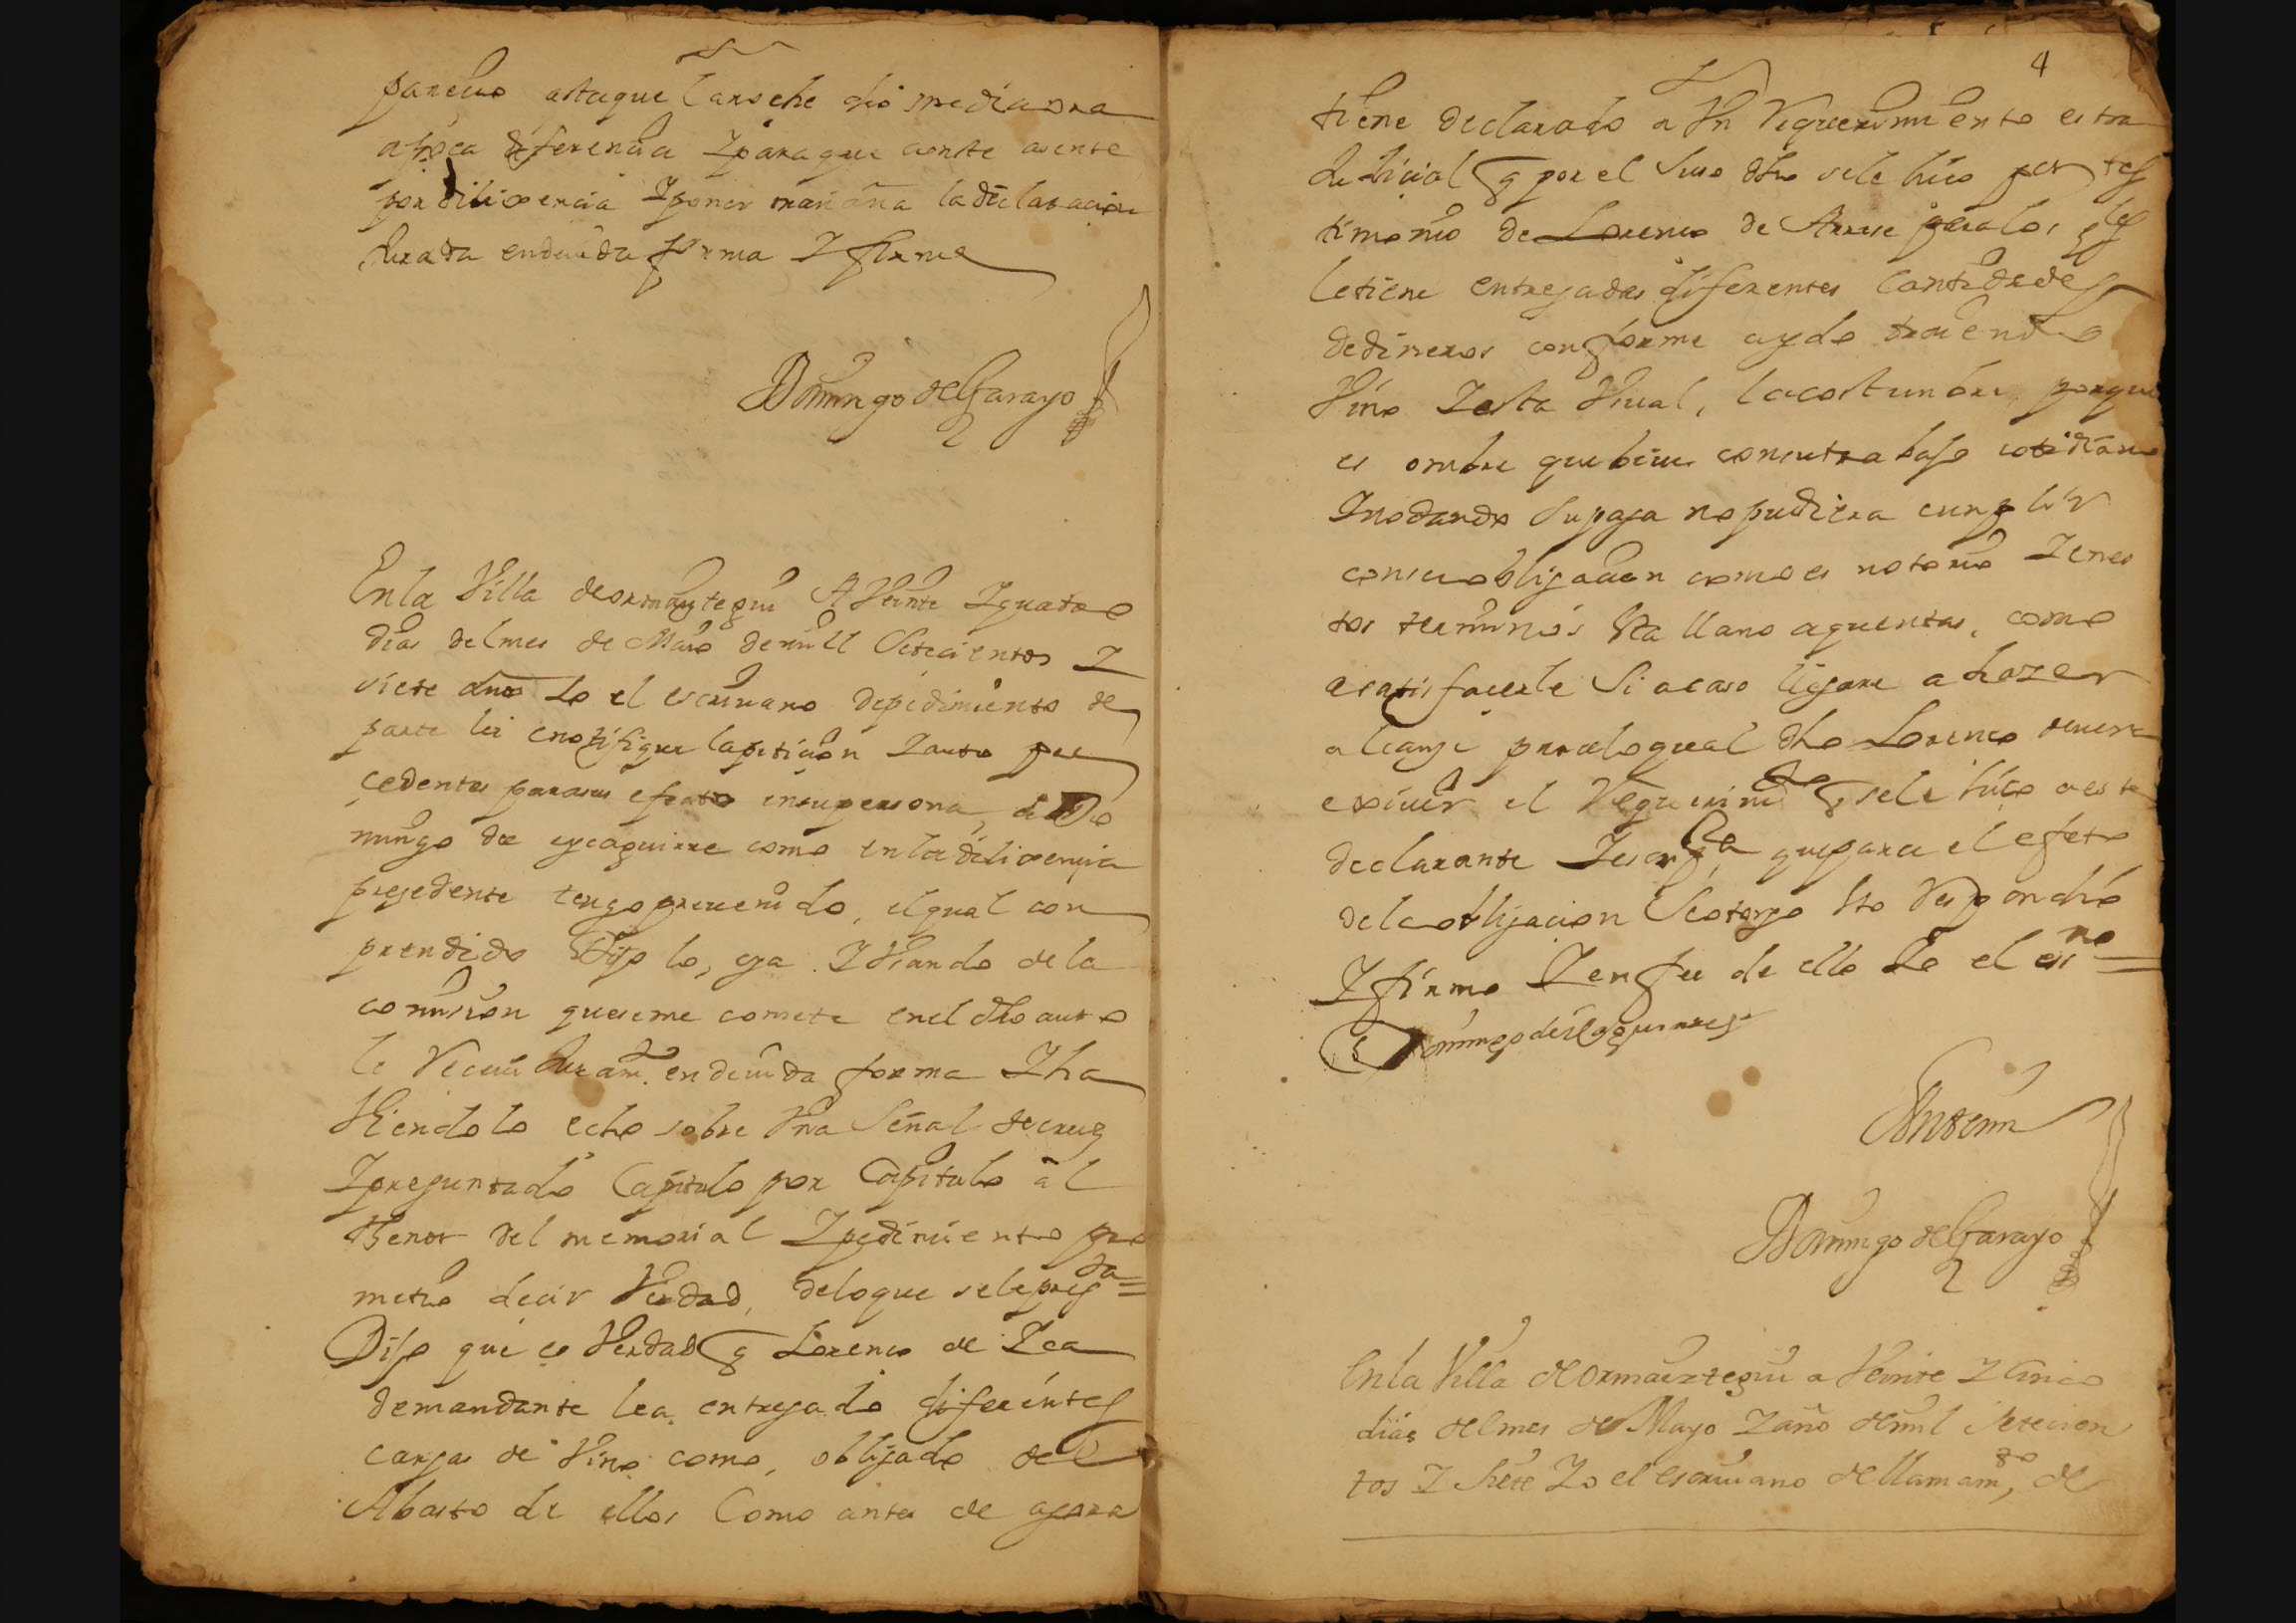 parecio astaque lanoche dio mediaora
apoca diferencia Iparaque conste asente
por dilixencia Iponer mañana la declaracion
Jurada endeuida forma I firme
Domingo de Garayo
Enla Villa deormaiztegui A Veinte Iquatro
dias delmes de Maio demill Setecientos I
siete años Io el escriuano depedimiento de
parte lei enotifique lapeticion Iauto pre
cedentes parasu efecto ensupersona, a Do
mingo de eyçaguirre como enla dilixençia
presedente tengo preuenido, elqual con
prendido Dijo lo, oya I Vsando dela
comision queseme comete enel dho auto
le Reciui Juramto. endeuida forma Iha
Viendolo echo sobre Vna Señal decruz
Ipreguntado Capitulo por Capitulo al
thenor del memorial Ipedimiento pro
metio decir Verdad, deloque selepregda=
Dijo que es Verdad q Lorenco de Zea
demandante lea entregado diferentes
cargas de Vino como, obligado del
Abasto de ellos Como antes de agora
4
tiene declarado a Vn Requerimiento estra
Judicial q por el suso dho sele hico por tes
timonio de Lorenco de Arrese paralos qles
letiene entregadas diferentes Cantidades
dedineros conforme aydo traiendo
Vino Iesta Vsual, lacostumbre porque
es ombre quebiue consutrabajo cotidiano
Inodando supaga nopudiera cunplir
consuobligacion como es notorio Ienes
tos terminos Sta llano aquentas, como
asatisfacerle Si acaso llegare a hazer
alcanze paraloqual dho Lorenco deuera
exiuir el Requerimto q sele hico aeste
declarante Iescrpa queparael efeto
delaobligacion Seotorgo Sto Respondio
I firmo I enfee de ello Io el esno=
Domingo deeicaguirre
Antemi
Domingo de Garayo
Enla Villa deormaiztegui a Veinte I Cinco
dias delmes de Mayo I año demil Setecien
tos I Siete Io el escriuano dellamamto, de